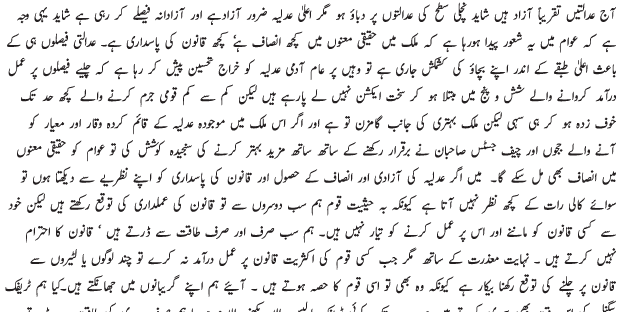 آج عدالتیں تقریباً آزاد ہیں شاید نچلی سطح کی عدالتوں پر دباؤ ہو مگر اعلیٰ عدلیہ ضرور آزادہے اور آزادانہ فیصلے کر رہی ہے شاید یہی وجہ
ہے کہ عوام میں یہ شعور پیدا ہورہا ہے کہ ملک میں حقیقی معنوں میں کچھ انصاف ہے’ کچھ قانون کی پاسداری ہے۔ عدالتی فیصلوں ہی کے
باعث اعلیٰ طبقے کے اندر اپنے بچاؤ کی کشمکش جاری ہے تو وہیں پر عام آدمی عدلیہ کو خراج تحسین پیش کر رہا ہے کہ چلیے فیصلوں پر عمل
درآمد کروانے والے شش و پنج میں مبتلا ہو کر سخت ایکشن نہیں لے پارہے ہیں لیکن کم سے کم قومی جرم کرنے والے کچھ حد تک
خوف زدہ ہو کر ہی سہی لیکن ملک بہتری کی جانب گامزن تو ہے اور اگر اس ملک میں موجودہ عدلیہ کے قائم کردہ وقار اور معیار کو
آنے والے ججوں اور چیف جسٹس صاحبان نے برقرار رکھنے کے ساتھ ساتھ مزید بہتر کرنے کی سنجیدہ کوشش کی تو عوام کو حقیقی معنوں
میں انصاف بھی مل سکے گا۔ میں اگر عدلیہ کی آزادی اور انصاف کے حصول اور قانون کی پاسداری کو اپنے نظریے سے دیکھتا ہوں تو
سوائے کالی رات کے کچھ نظر نہیں آتا ہے کیونکہ بہ حیثیت قوم ہم سب دوسروں سے تو قانون کی عملداری کی توقع رکھتے ہیں لیکن خود
سے کسی قانون کو ماننے اور اس پر عمل کرنے کو تیار نہیں ہیں۔ ہم سب صرف اور صرف طاقت سے ڈرتے ہیں ‘ قانون کا احترام
نہیں کرتے ہیں ۔ نہایت معذرت کے ساتھ مگر جب کسی قوم کی اکثریت قانون پر عمل درآمد نہ کرے تو چند لوگوں یا لٹیروں سے
قانون پر چلنے کی توقع رکھنا بیکار ہے کیونکہ وہ بھی تو اسی قوم کا حصہ ہوتے ہیں ۔ آیئے ہم اپنے گریبانوں میں جھانکتے ہیں۔کیا ہم ٹریفک